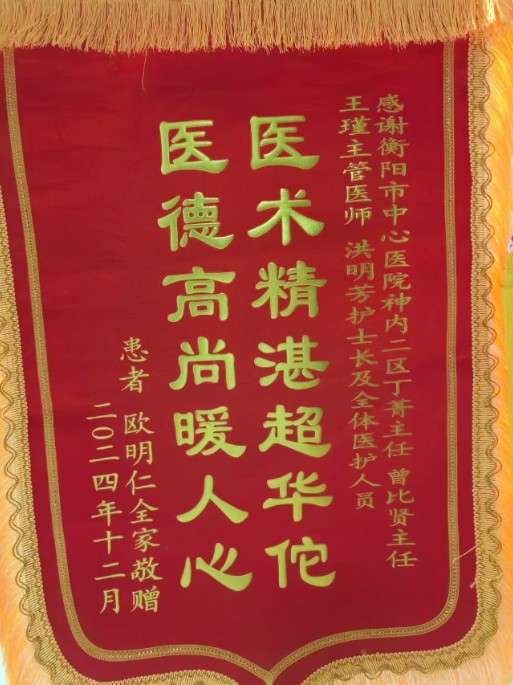 感谢衡阳市中心医院神内二区丁菁主任 曾比贤主任
王瑾主管医师 洪明芳护士长及全体医护人员
医术精湛超华佗
医德高尚暖人心
患者 欧明仁全家敬赠
二〇二四年十二月